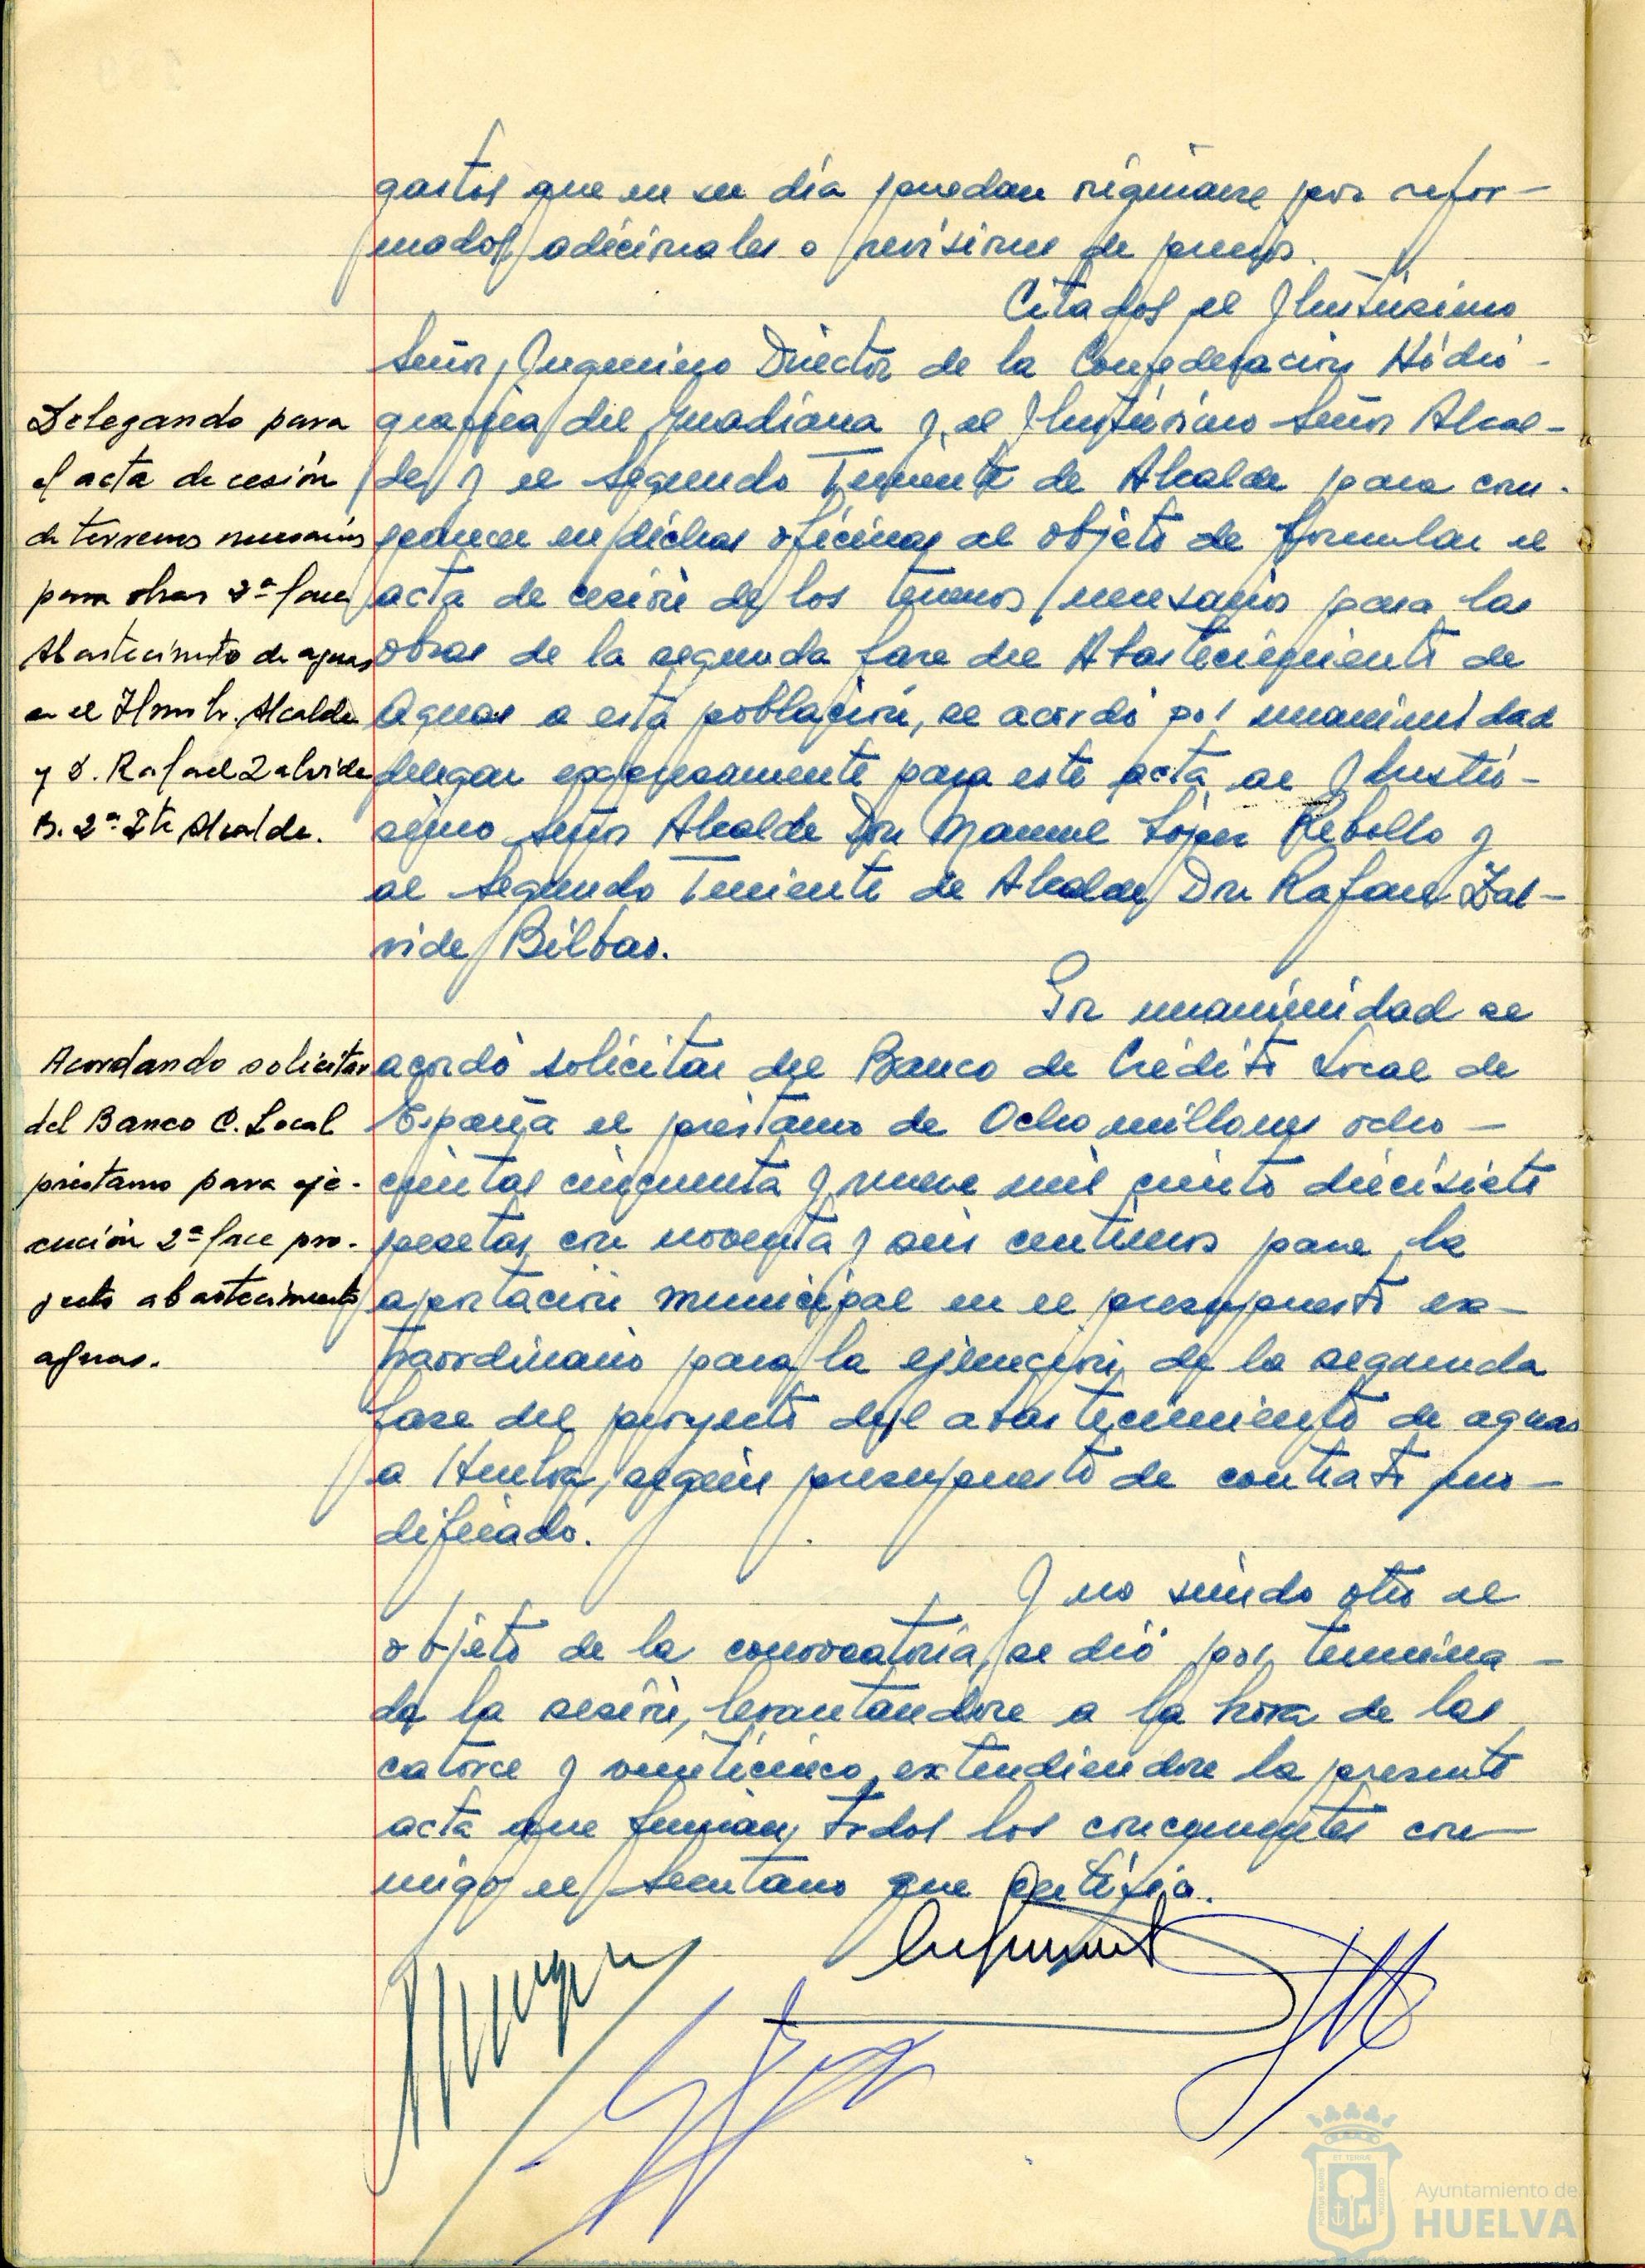 gastos que en su dia puedan originarse por refor-
mados adicionales o revisiones de precios.
Citados el Ilustrisimo
Señor Ingeniero Director de la Confederacion Hidro-
Delegando para
el acta de cesión
de terrenos necesarios
para obras 2ª fase
Abastecimto de aguas
en el Ilmo Sr. Alcalde
y D. Rafael Zalvide
B. 2º Tte Alcalde.
grafica del Guadiana y el Ilustrisimo Señor Alcal-
de y el Segundo Teniente de Alcalde para com-
parecer en dichas oficinas al objeto de formular el
acta de cesión de los terrenos necesarios para las
obras de la segunda fase del Abastecimiento de
Aguas a esta población, se acordó por unanimidad
delegar expresamente para este acta al Ilustri-
simo Señor Alcalde Don Manuel López Rebollo y
al Segundo Teniente de Alcalde Don Rafael Zal-
vide Bilbao.
Por unanimidad se
Acordando solicitar
del Banco C. Local
préstamo para eje-
cución 2ª fase pro-
yecto abastecimiento
aguas.
acordó solicitar del Banco de Crédito Local de
España el préstamo de Ocho millones ocho-
cientas cincuenta y nueve mil ciento diecisiete
pesetas con noventa y seis centimos para la
aportación municipal en el presupuesto ex-
traordinario para la ejecución de la segunda
fase del proyecto del abastecimiento de aguas
a Huelva, según presupuesto de contrato mo-
dificado.
Y no siendo otro el
objeto de la convocatoria, se dió por termina-
da la sesión, levantandose a la hora de las
catorce y veinticinco, extendiendose la presente
acta que firman todos los concurrentes con-
migo el Secretario que certifica.
Ayuntamiento de
HUELVA